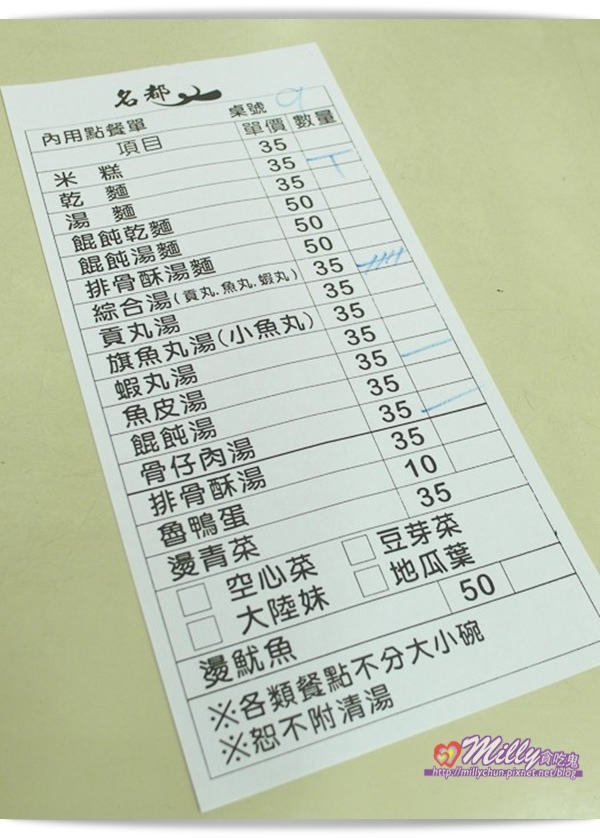 名都
內用點餐單 桌號 9
項目 單價 數量
米糕 35
乾麵 35
湯麵 35
餛飩乾麵 50
餛飩湯麵 50
排骨酥湯麵 50
綜合湯(貢丸.魚丸.蝦丸) 35
貢丸湯 35
旗魚丸湯(小魚丸) 35
蝦丸湯 35
魚皮湯 35
餛飩湯 35
骨仔肉湯 35
排骨酥湯 35
魯鴨蛋 10
燙青菜 35
□ 空心菜 □ 豆芽菜
□ 大陸妹 □ 地瓜葉
燙魷魚 50
※各類餐點不分大小碗
※恕不附清湯
Milly貪吃鬼
http://millychun.pixnet.net/blog